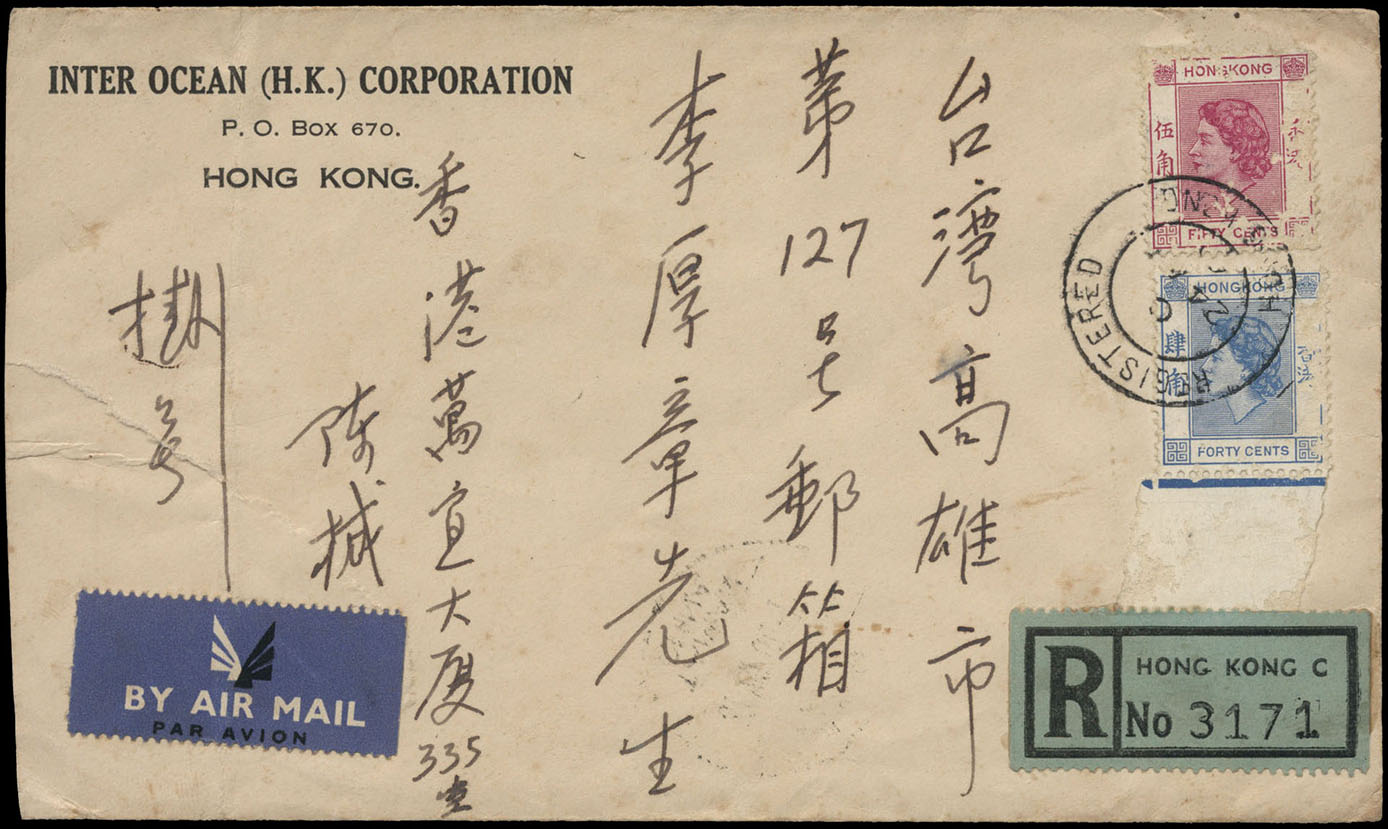 INTER OCEAN (H.K.) CORPORATION
P. O. BOX 670.
HONG KONG.
台湾高雄市
第127号郵箱
李厚章先生
香港萬宜大厦335室
陈械
掛号
HONGKONG
伍角
香港
FIFTY CENTS
HONGKONG
肆角
香港
FORTY CENTS
REGISTERED
HONG KONG
24
BY AIR MAIL
PAR AVION
R
HONG KONG C
No 3171